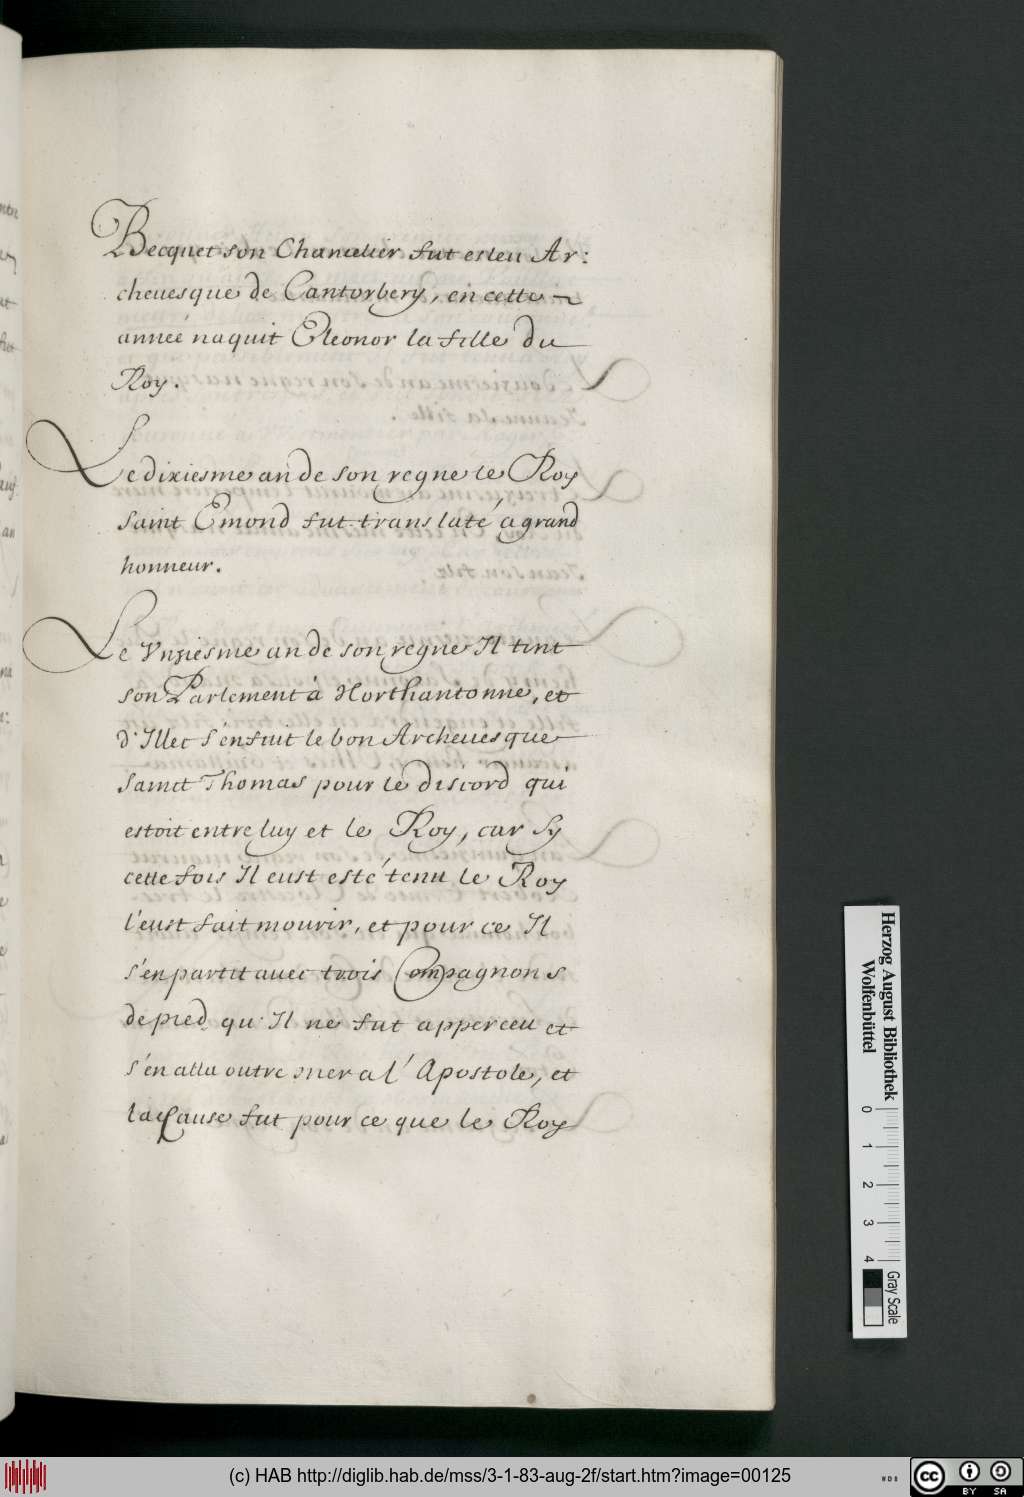 Becquet son Chancelier fut esleu Ar:
cheuesque de Cantorbery, en cette
anneé naquit Eleonor la fille du
Roy.
Le dixiesme an de son regne le Roy
saint Emond fut translaté a grand
honneur.
Le Vnziesme an de son regne Il tint
son Parlement à Northantonne, et
d'Illec s'ensuit le bon Archeuesque
Sainct Thomas pour le discord qui
estoit entre luy et le Roy, car Sy
cette fois Il eust esté tenu le Roy
l'eust fait mourir, et pour ce Il
s'en partit auec trois Compagnons
de pied qu'Il ne fut apperceu et
s'en alla outre mer a l'Apostole, et
la Cause fut pour ce que le Roy
Herzog August Bibliothek
Wolfenbüttel
0 1 2 3 4
Gray Scale
(c) HAB http://diglib.hab.de/mss/3-1-83-aug-2f/start.htm?image=00125
WDB
cc BY SA